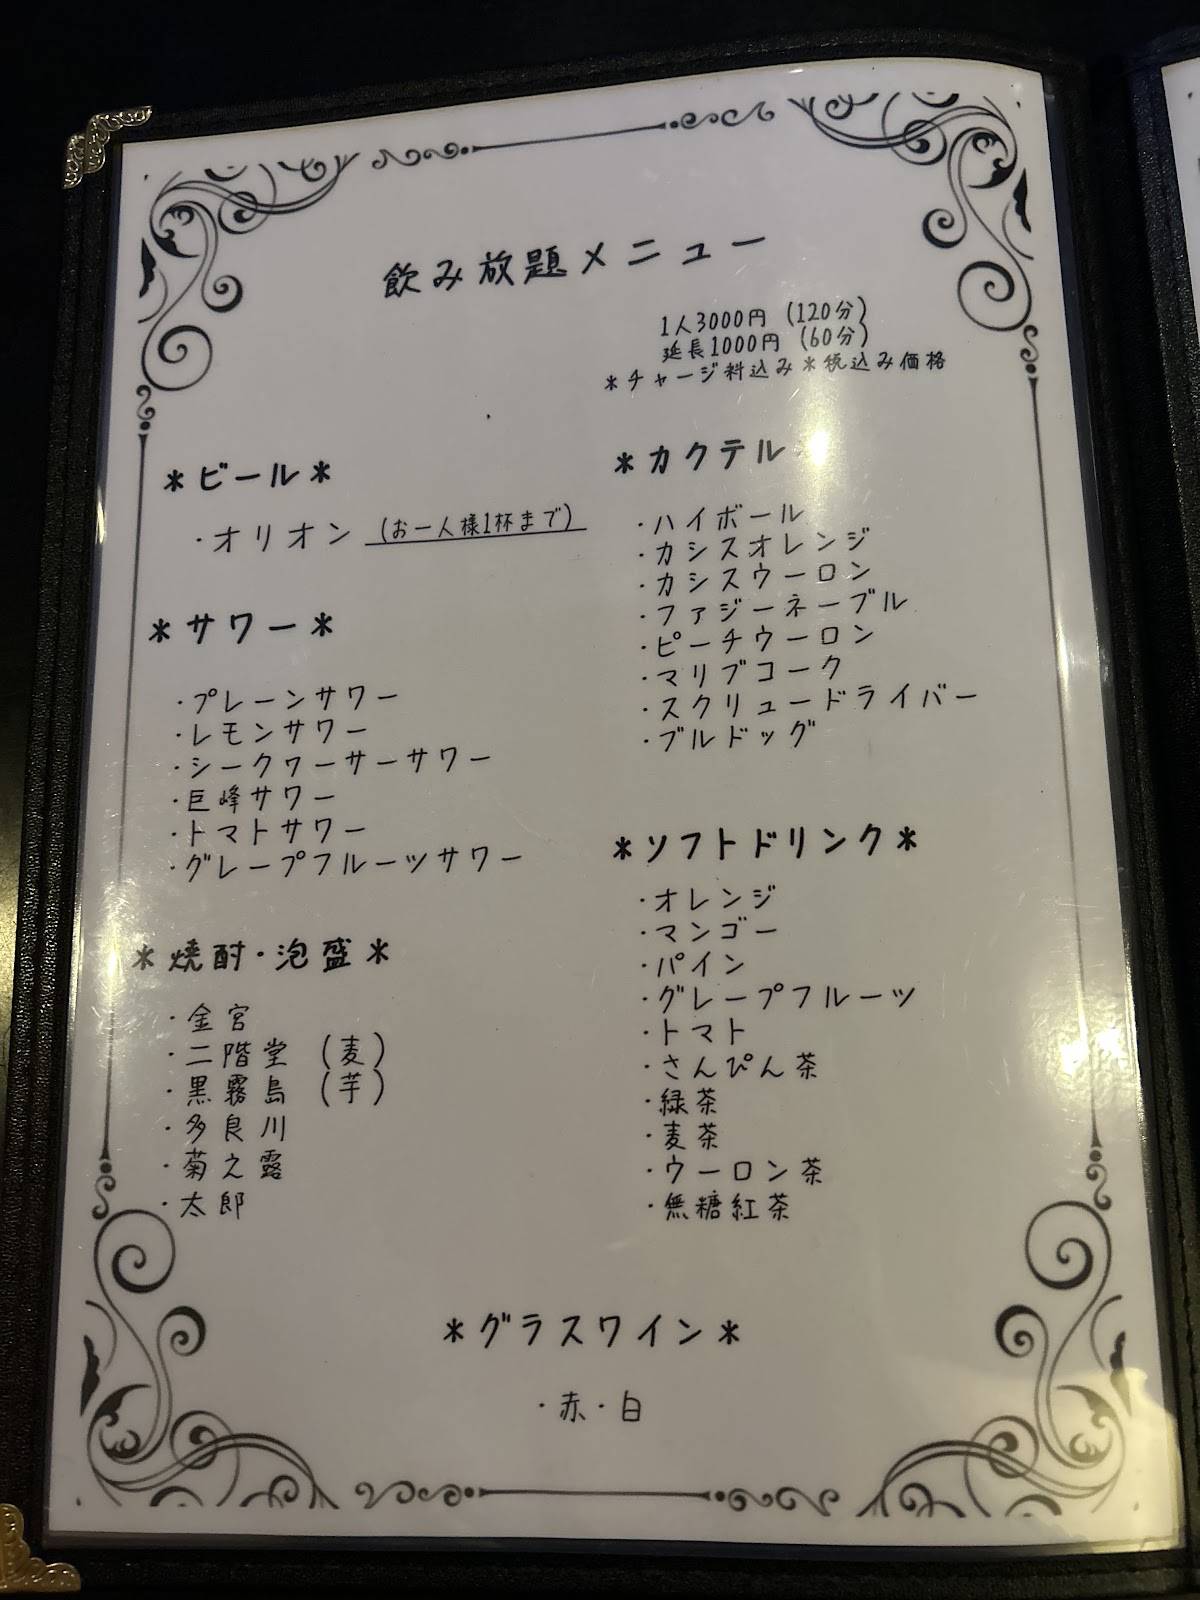 飲み放題メニュー
1人3000円 (120分)
延長1000円 (60分)
*チャージ料込み*税込み価格
*ビール*
・オリオン (お一人様1杯まで)
*サワー*
・プレーンサワー
・レモンサワー
・シークヮーサーサワー
・巨峰サワー
・トマトサワー
・グレープフルーツサワー
*焼酎・泡盛*
・金宮
・二階堂 (麦)
・黒霧島 (芋)
・多良川
・菊之露
・太郎
*カクテル*
・ハイボール
・カシスオレンジ
・カシスウーロン
・ファジーネーブル
・ピーチウーロン
・マリブコーク
・スクリュードライバー
・ブルドッグ
*ソフトドリンク*
・オレンジ
・マンゴー
・パイン
・グレープフルーツ
・トマト
・さんぴん茶
・緑茶
・麦茶
・ウーロン茶
・無糖紅茶
*グラスワイン*
・赤・白